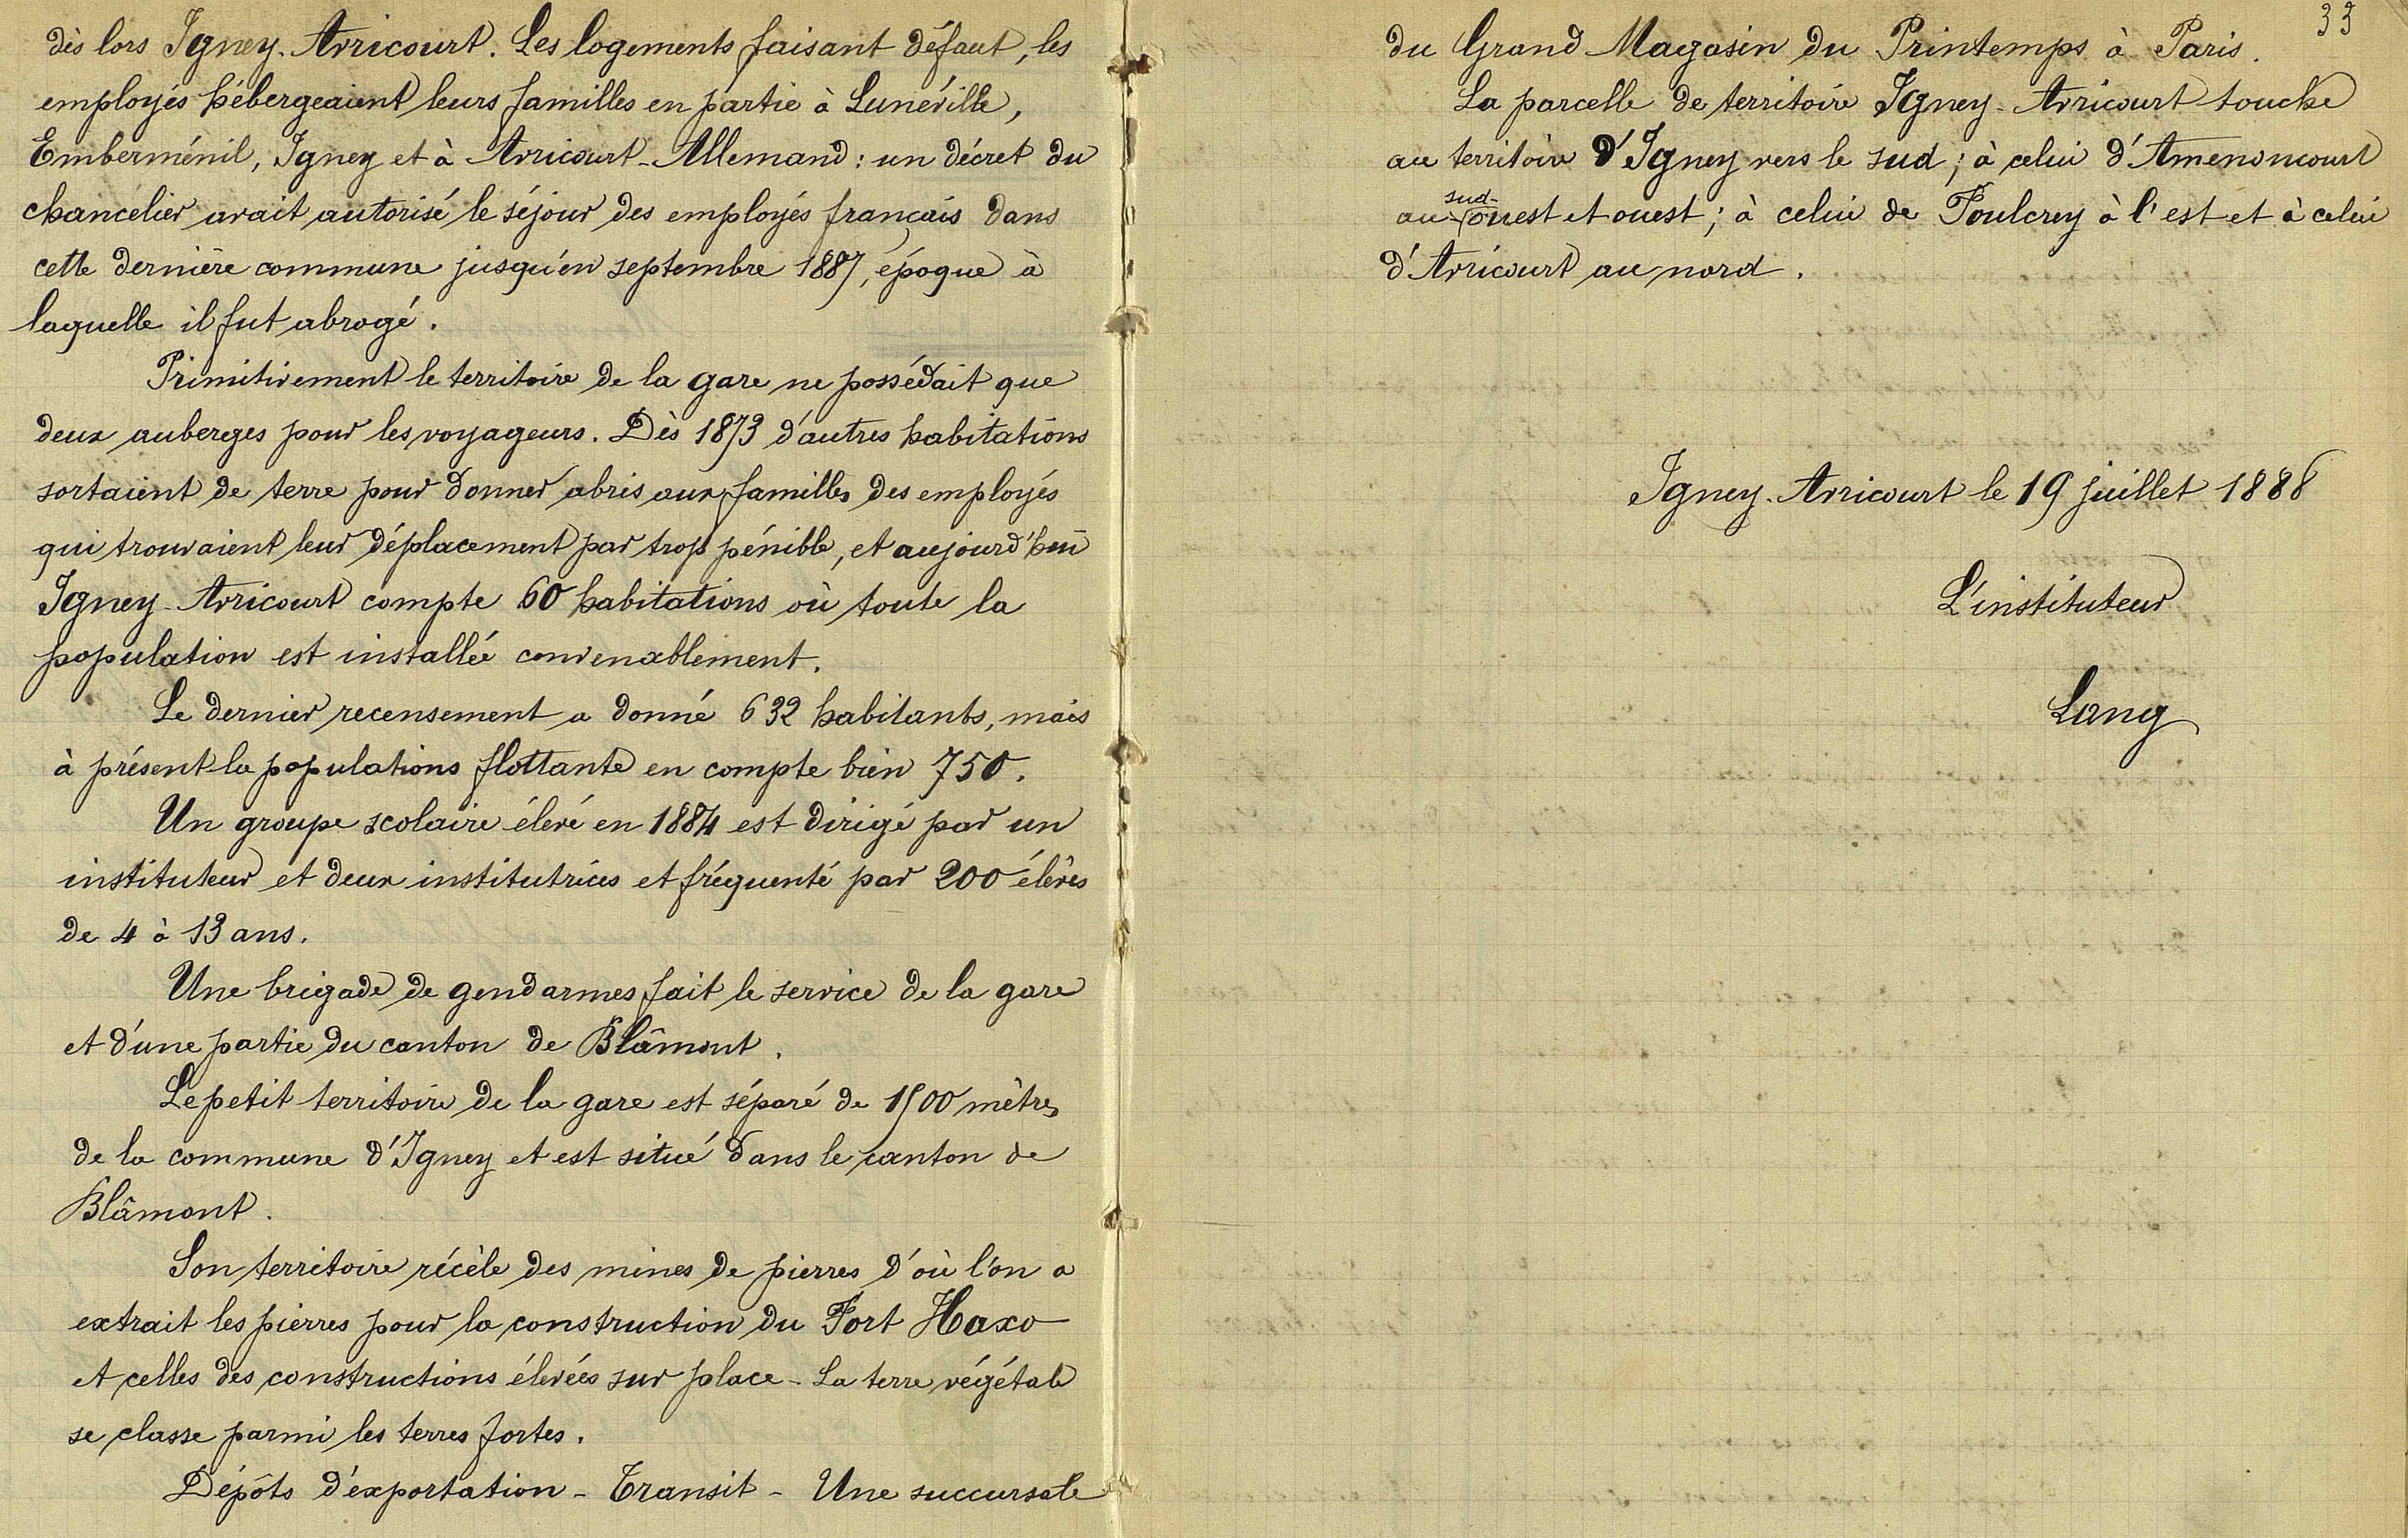 dès lors Igney-Avricourt. Les logements faisant défaut, les
employés hébergeaient leurs familles en partie à Lunéville,
Emberménil, Igney et à Avricourt-Allemand : un décret du
chancelier avait autorisé le séjour des employés français dans
cette dernière commune jusqu'en septembre 1887, époque à
laquelle il fut abrogé.
Primitivement le territoire de la gare ne possédait que
deux auberges pour les voyageurs. Dès 1873 d'autres habitations
sortaient de terre pour donner abris aux familles des employés
qui trouvaient leur déplacement par trop pénible, et aujourd'hui
Igney-Avricourt compte 60 habitations où toute la
population est installée convenablement.
Le dernier recensement a donné 632 habitants, mais
à présent la populations flottante en compte bien 750.
Un groupe scolaire élevé en 1884 est dirigé par un
instituteur et deux institutrices et fréquenté par 200 élèves
de 4 à 13 ans.
Une brigade de gendarmes fait le service de la gare
et d'une partie du canton de Blâmont.
Le petit territoire de la gare est séparé de 1500 mètres
de la commune d'Igney et est situé dans le canton de
Blâmont.
Son territoire récèle des mines de pierres d'où l'on a
extrait les pierres pour la construction du Fort Haxo
et celles des constructions élevées sur place - La terre végétale
se classe parmi les terres fortes.
Dépôts d'exportation - Transit - Une succursale
33
du Grand Magasin du Printemps à Paris.
La parcelle de territoire Igney-Avricourt touche
au territoire d'Igney vers le sud ; à celui d'Amenoncourt
au sud-ouest et ouest ; à celui de Foulcrey à l'est et à celui
d'Avricourt au nord.
Igney-Avricourt le 19 juillet 1888
L'instituteur
Lang